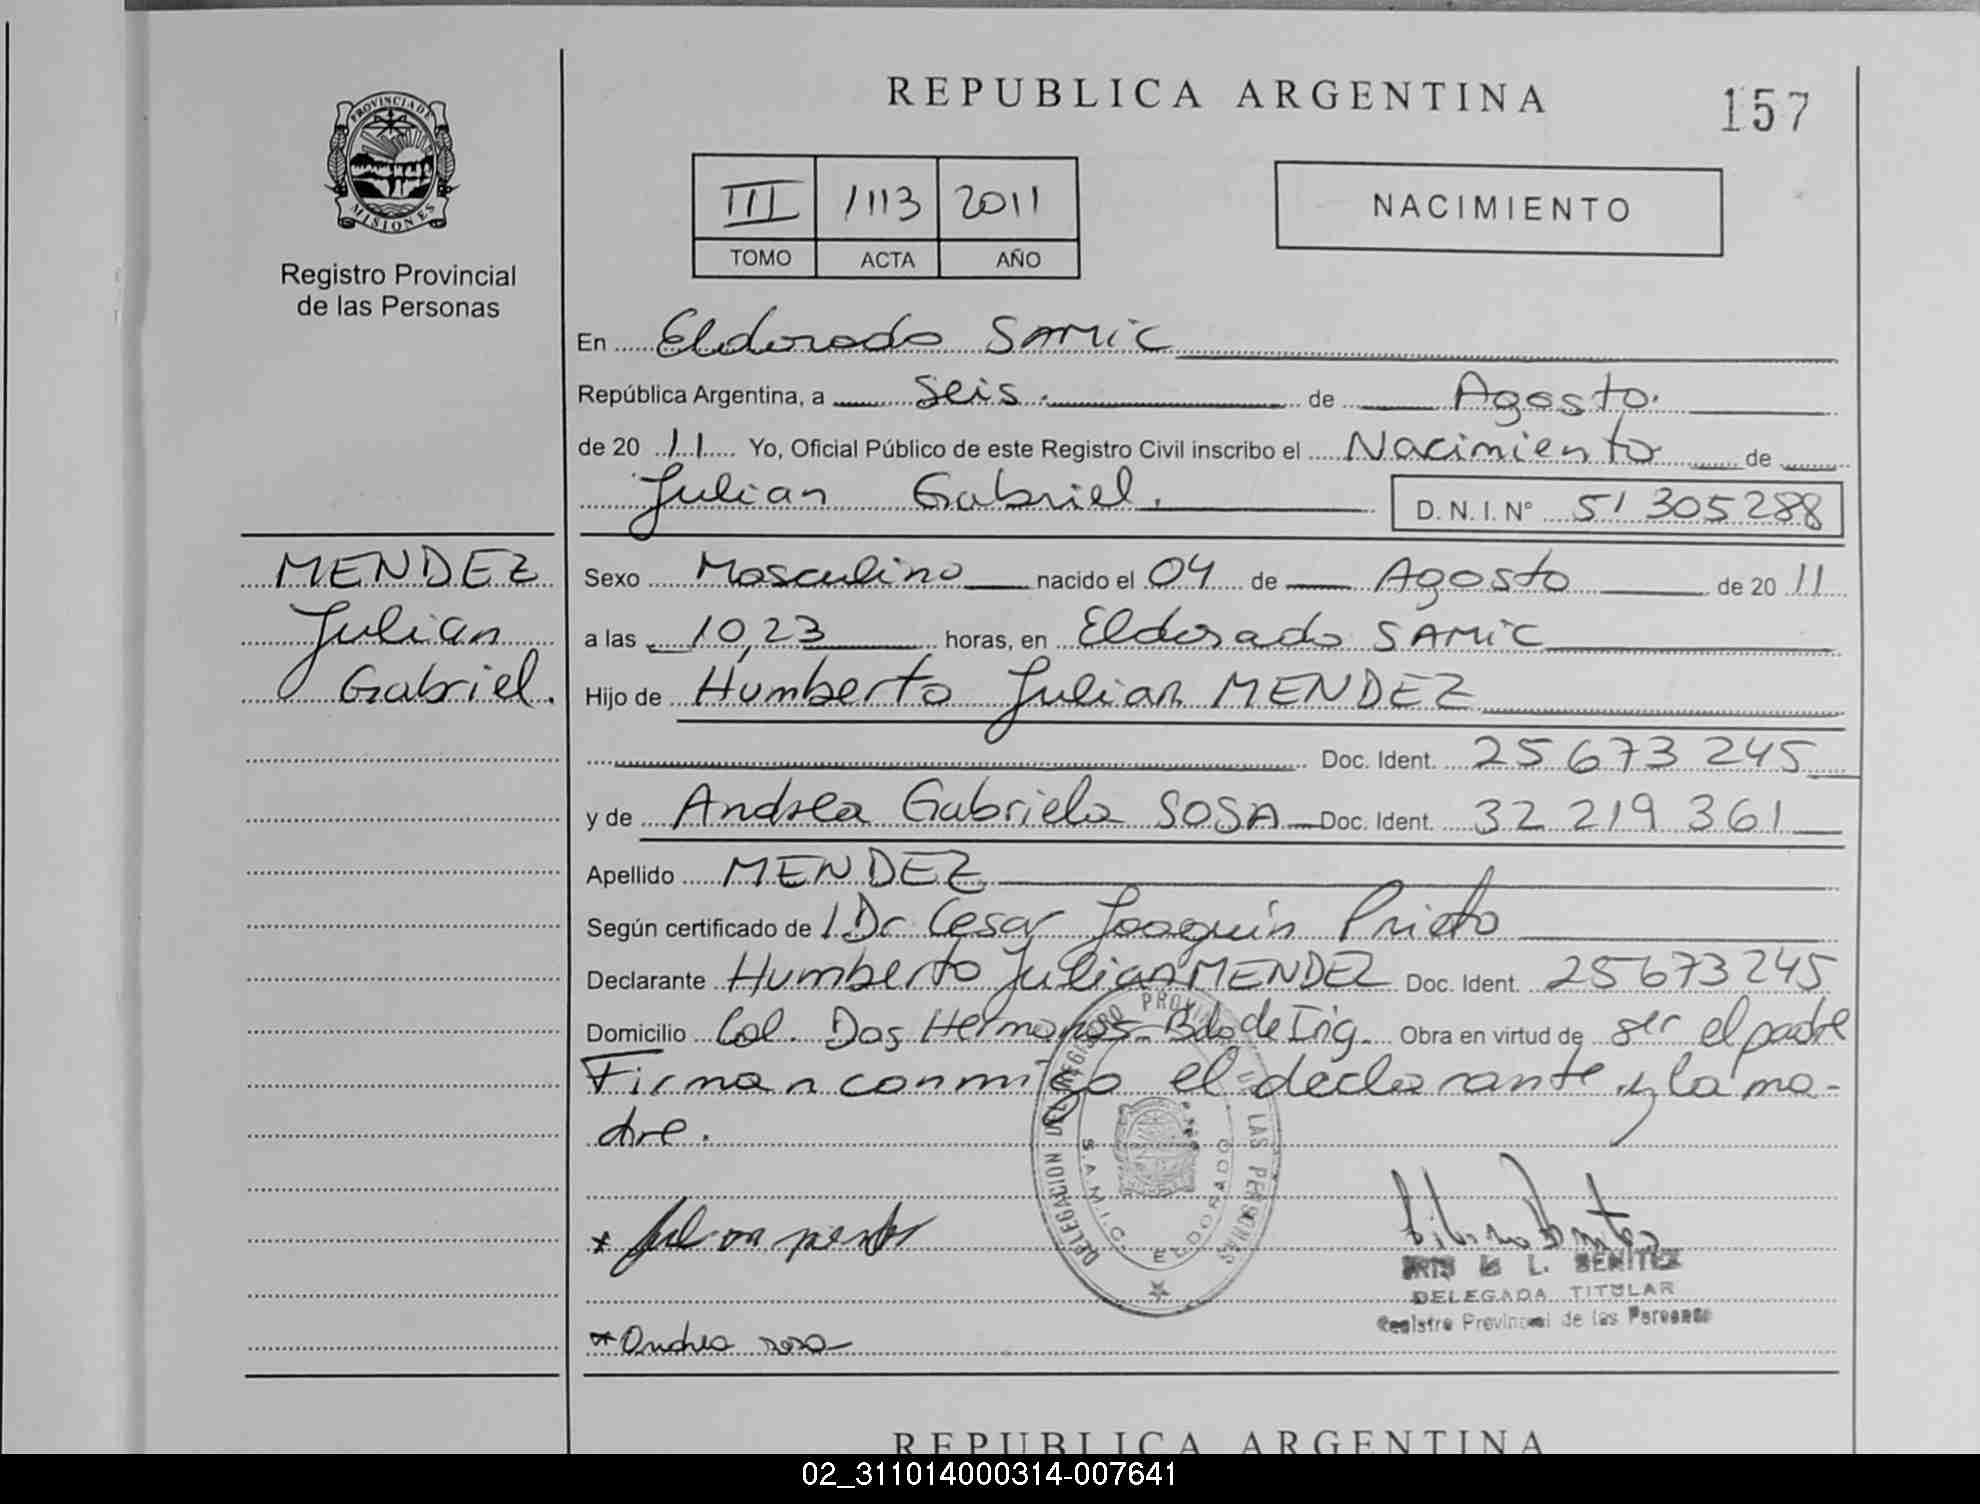 REPUBLICA ARGENTINA
157
PROVINCIA DE
MISIONES
Registro Provincial
de las Personas
III 1113 2011
TOMO ACTA AÑO
NACIMIENTO
En Eldorado SAMIC
República Argentina, a Seis. de Agosto.
de 20 11 Yo, Oficial Público de este Registro Civil inscribo el Nacimiento de
Julian Gabriel. D.N.I. Nº 51 305288
MENDEZ
Julian
Gabriel.
Sexo Masculino nacido el 04 de Agosto de 20 11
a las 10,23 horas, en Eldorado SAMIC
Hijo de Humberto Julian MENDEZ
Doc. Ident. 25 673 245
y de Andrea Gabriela SOSA Doc. Ident. 32 219 361
Apellido MENDEZ
Según certificado de / Dr Cesar Joaquín Prieto
Declarante Humberto Julian MENDEZ Doc. Ident. 25673245
Domicilio Col. Dos Hermanos - Bdo de Irig. Obra en virtud de ser el padre
Firman conmigo el declarante y la ma-
dre.
DELEGACION DEL REGISTRO PROVINCIAL DE LAS PERSONAS
S.A.M.I.C. ELDORADO
* Julian
L. BENITEZ
DELEGADA TITULAR
Registro Provincial de las Personas
* Andrea sosa
REPUBLICA ARGENTINA
02_311014000314-007641